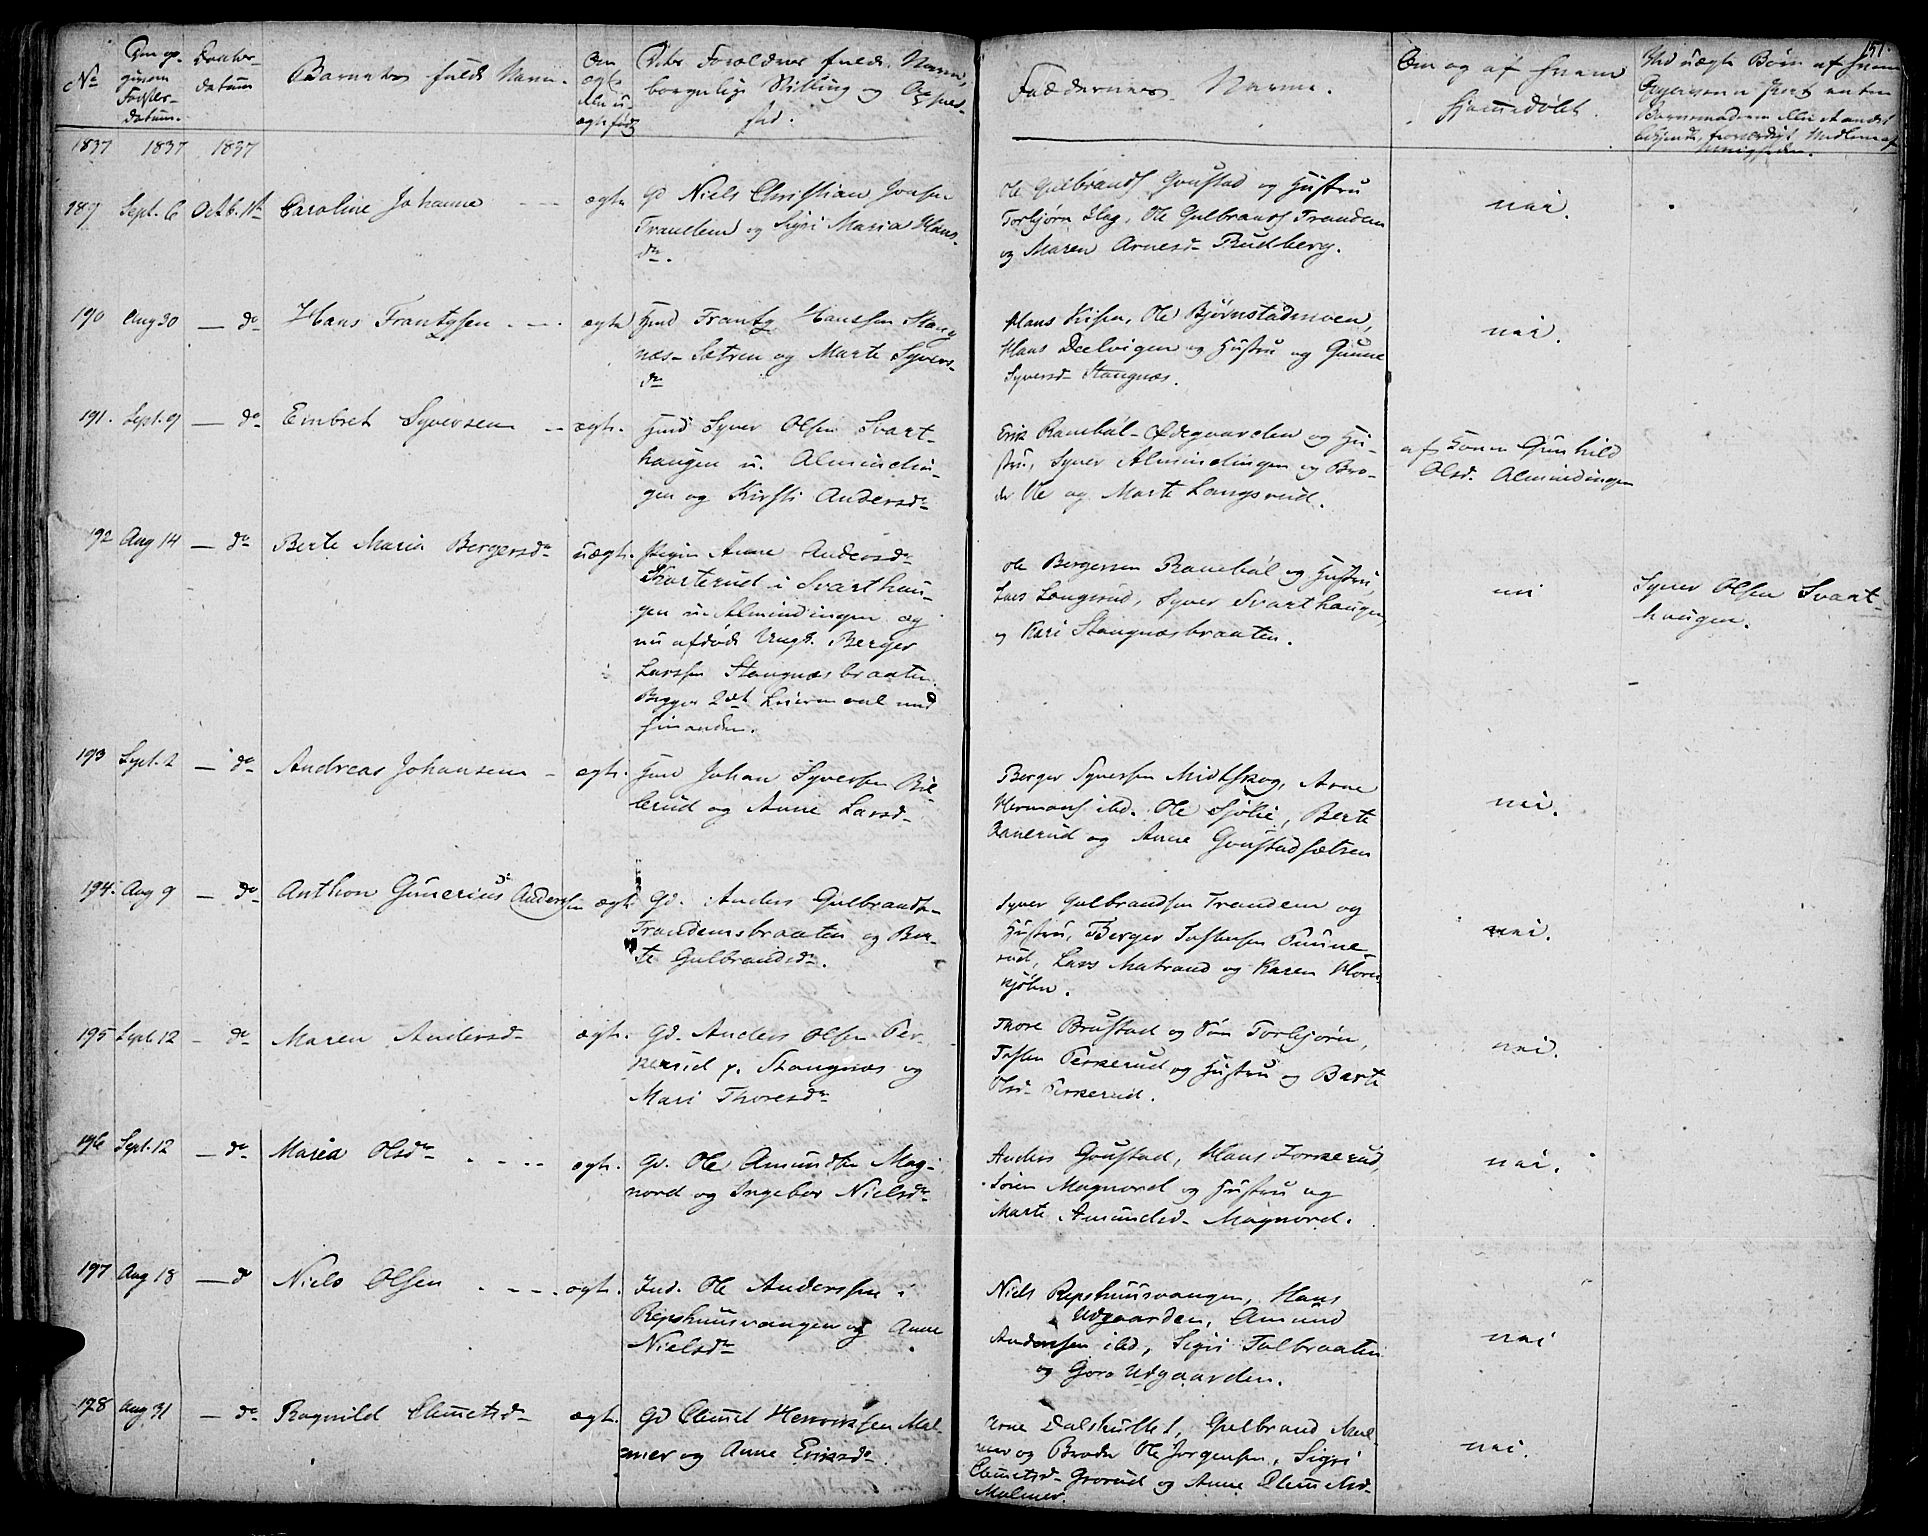 151.
No Den og- Daabs- Barnets fulde Navn. Om Dets Forældres fulde Navn,
datum ægte borgerlige Stilling og Opholds-
datum. ægte født sted.
Faddernes Navne. Om og af hvem hjemmedøbt.
Ved uægte Børn af hvem
1837 1837 1837
189 Sept. 6 Octb. 1st Caroline Johanne - - ægte Gd Niels Christian Jonsen
Trandem og Sigri Maria Hans-
dr.
Ole Gulbrands Goustad og Hustru
Torbjørn Hag, Ole Gulbrands Trandem
og Maren Arnesd Rudberg.
nei.
190 Aug 30 — do Hans Frantzsen - - - ægte Hmd Frantz Hanssen Stang
næs-Sætren og Marte Syvers-
dr
Hans Kisen, Ole Bjørnstadmoen,
Hans Deelvigen og Hustru og Gunne
Syversd Stangnæs.
nei.
191. Sept. 9 — do Embret Syversen - - ægte. Hmd Syver Olsen Svart-
haugen u. Almindin-
gen og Kirsti Andersdr
Erik Ranebøl-Ødegaarden og Hu-
stru, Syver Almindingen og Bro-
der Ole og Marte Langsrud.
af Konen Gunhild
Olsd. Almindingen
192 Aug 14 — do Berte Maria Bergersdr uægte. Pigen Anne Andersdr
i Svarthau-
gen u. Almindingen og
nu afdøde Ungk. Berger
Larssen Stangnæsbraaten.
Begges 2det Leiermaal med
hinanden.
Ole Bergersen Ranebøl og Hustru,
Lars Langsrud, Syver Svarthaugen
og Kari Stangnæsbraaten.
nei
Syver Olsen Svart-
haugen.
193 Sept. 2 — do Andreas Johansen - ægte. Hmd Johan Syversen Bil-
lerud og Anne Larsd
Berger Syversen Midtskog, Arne
Hermans ibd. Ole Sjølie, Berte
Ranerud og Anne Goustadsætren
nei.
194. Aug 9 — do Anthon Gunerius Andersen ægte Gd. Anders Gulbrands-
Trandemsbraaten og Ber-
te Gulbrandsdr.
Syver Gulbrandsen Trandem og
Hustru, Berger Tostensen
rud, Lars Matrand og Karen
kjølen.
nei.
195 Sept 12 - do Maren Andersd ægte. Gd. Anders Olsen Per-
kerud p. Stangnæs og
Mari Thoresdr
Thore Brustad og Søn Torbjørn,
Tosten Perkerud og Hustru og Berte
Olsd Perkerud.
nei.
196 Sept. 12 — do Maria Olsdr - - - ægte. Gd. Ole Amundsen Mag-
nord og Ingebor Nielsdr
Anders Goustad, Hans Torkerud,
Søren Magnord og Hustru og
Marte Amundsd Magnord.
nei.
197 Aug 18 — do Niels Olsen - - - ægte. Ind. Ole Anderssen i
Repshuusvangen og Anne
Nielsdr
Niels Repshuusvangen, Hans
Udgaarden, Amund
Anderssen ibd, Sigri Talbraaten
og Goro Udgaarden.
nei
198 Aug 31 — do Ragnild Clemetsd ægte. Gd Clemet Henriksen Mal-
mer og Anne Eriksdr.
Arne Dalshultet, Gulbrand Mal-
mer og Broder Ole Jørgensen, Sigri
Clemetsd Grorud og Anne Clemetsd-
Malmer.
nei.